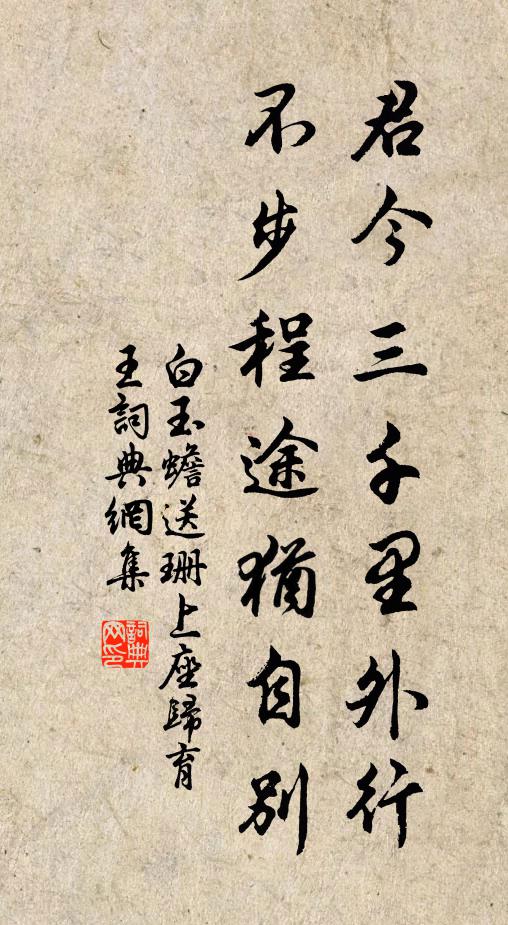 君今三千里外行
不步程途猶自別
白玉蟾送珊上座歸育
王詞典網集
詞典網印